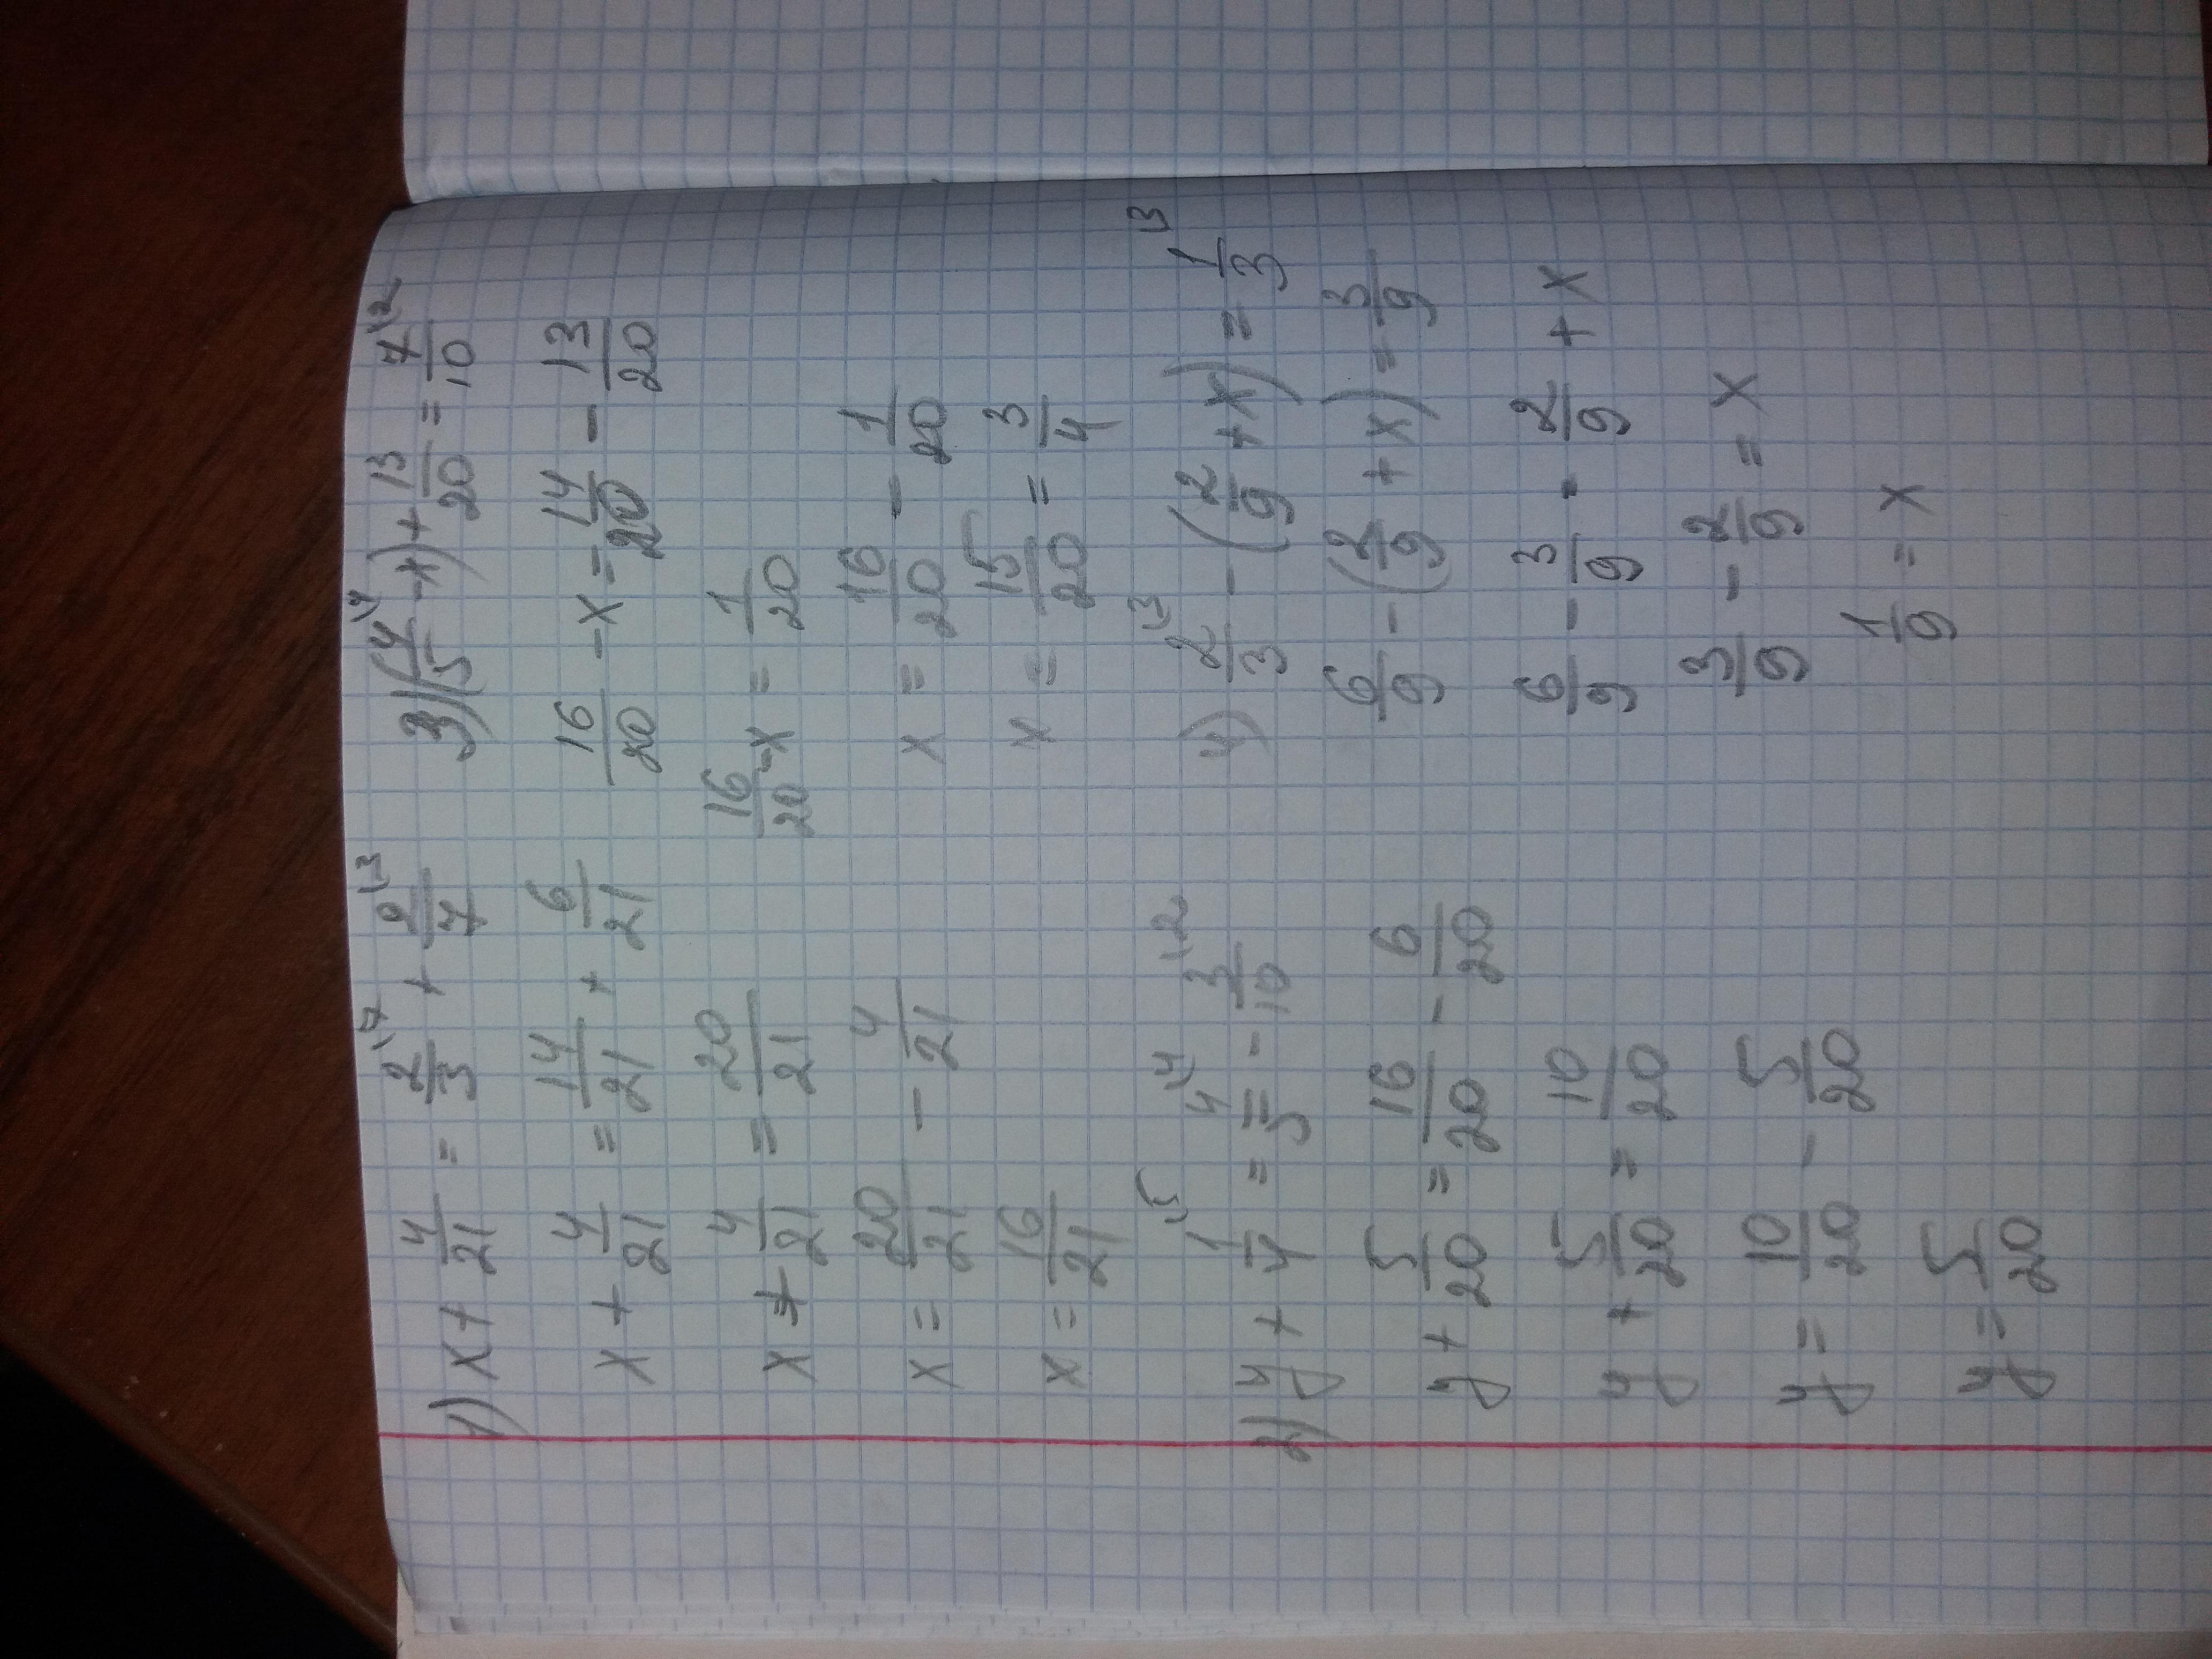 1) x + 4/21 = 2/3 \7 + 2/7 \3
x + 4/21 = 14/21 + 6/21
x + 4/21 = 20/21
x = 20/21 - 4/21
x = 16/21
2) y + 1/4 \5 = 4/5 \4 - 3/10 \2
y + 5/20 = 16/20 - 6/20
y + 5/20 = 10/20
y = 10/20 - 5/20
y = 5/20
3) (4/5 \4 - x) + 13/20 = 7/10 \2
16/20 - x = 14/20 - 13/20
16/20 - x = 1/20
x = 16/20 - 1/20
x = 15/20 = 3/4
4) 2/3 \3 - (2/9 + x) = 1/3 \3
6/9 - (2/9 + x) = 3/9
6/9 - 3/9 = 2/9 + x
3/9 - 2/9 = x
1/9 = x